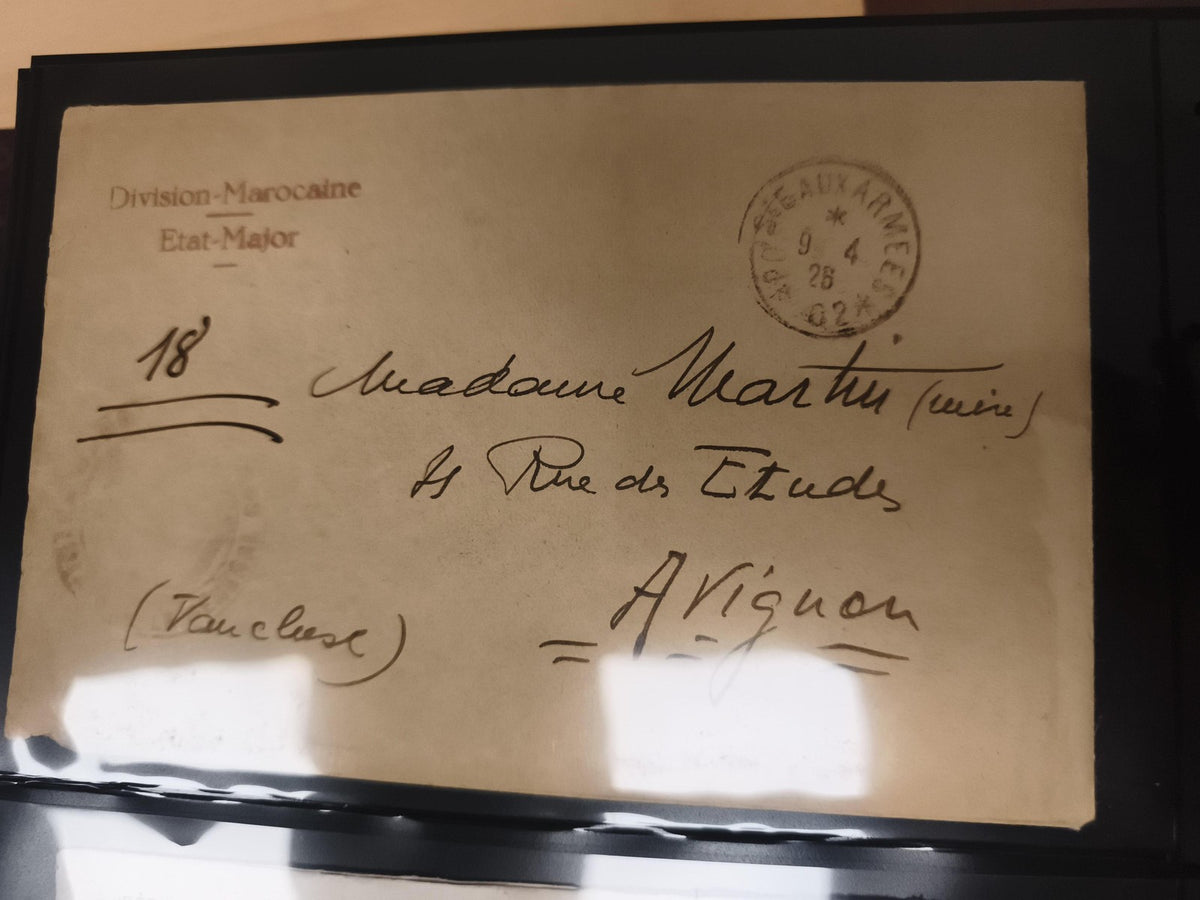 Division-Marocaine
Etat-Major
POSTE AUX ARMEES
*
9 4
26
*
18
Madame Martin (mère)
Rue des Etudes
Avignon
(Vaucluse)